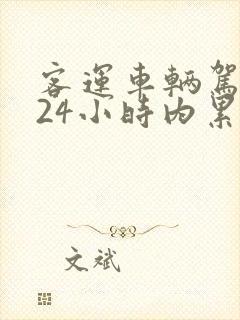 客運車輛駕
24小時內累
文斌